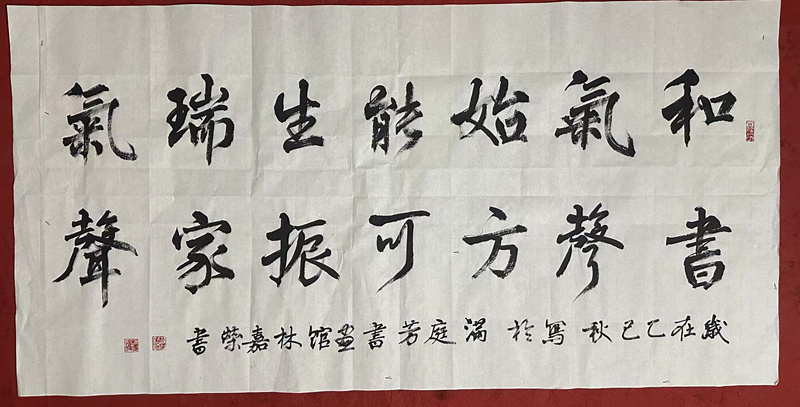 和氣始能生瑞氣
書聲方可振家聲
歲在乙巳秋寫於滿庭芳書画馆林嘉榮書